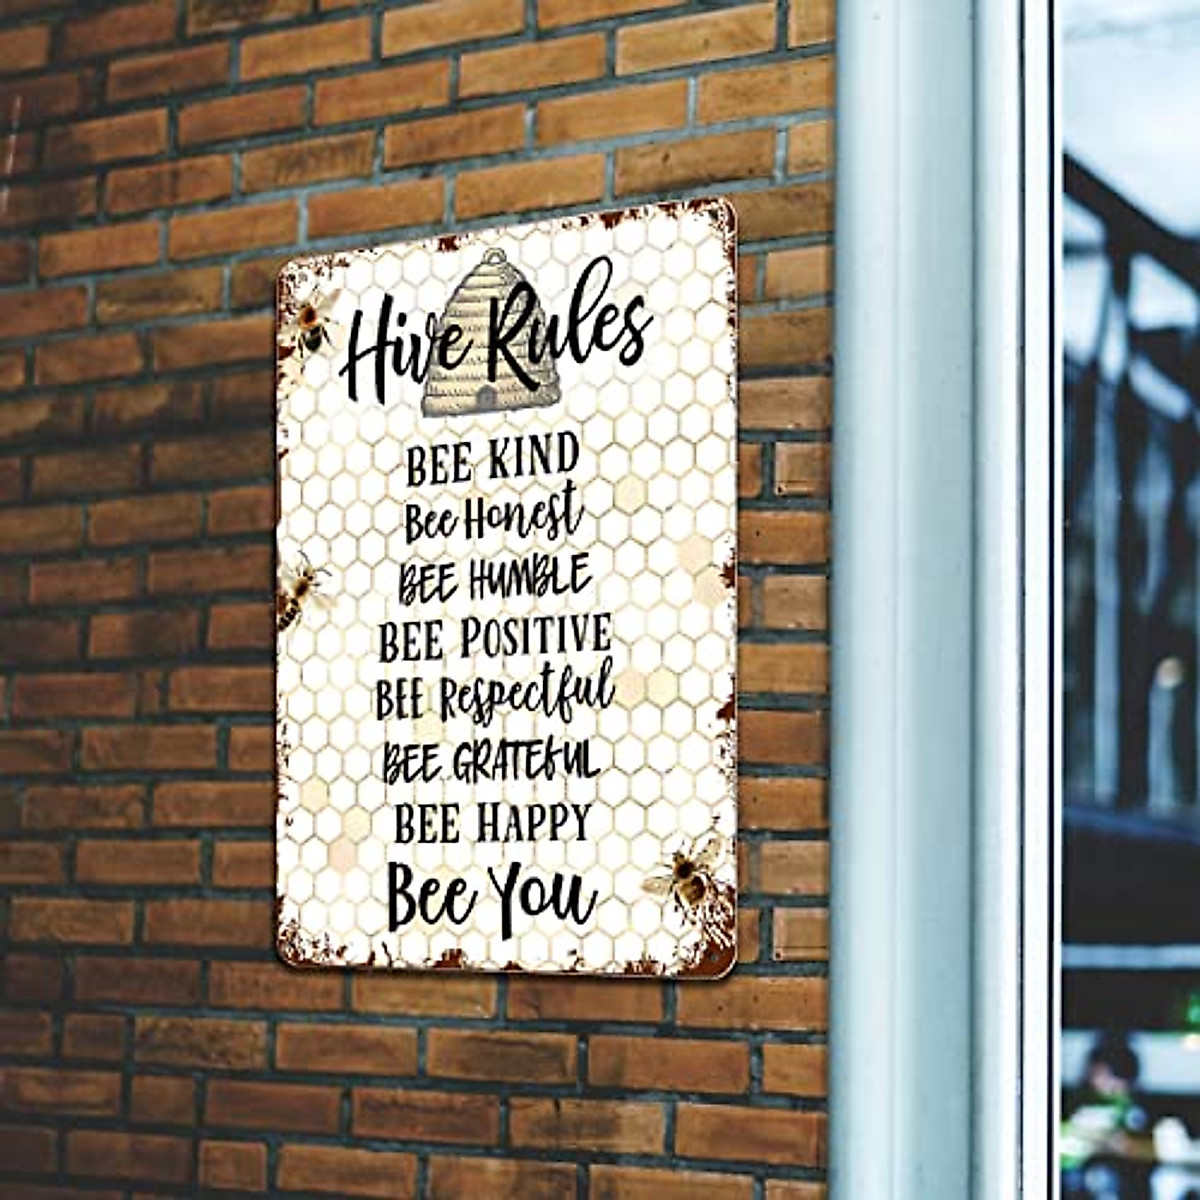 Hive Rules
BEE KIND
Bee Honest
BEE HUMBLE
BEE POSITIVE
BEE Respectful
BEE GRATEFUL
BEE HAPPY
Bee You